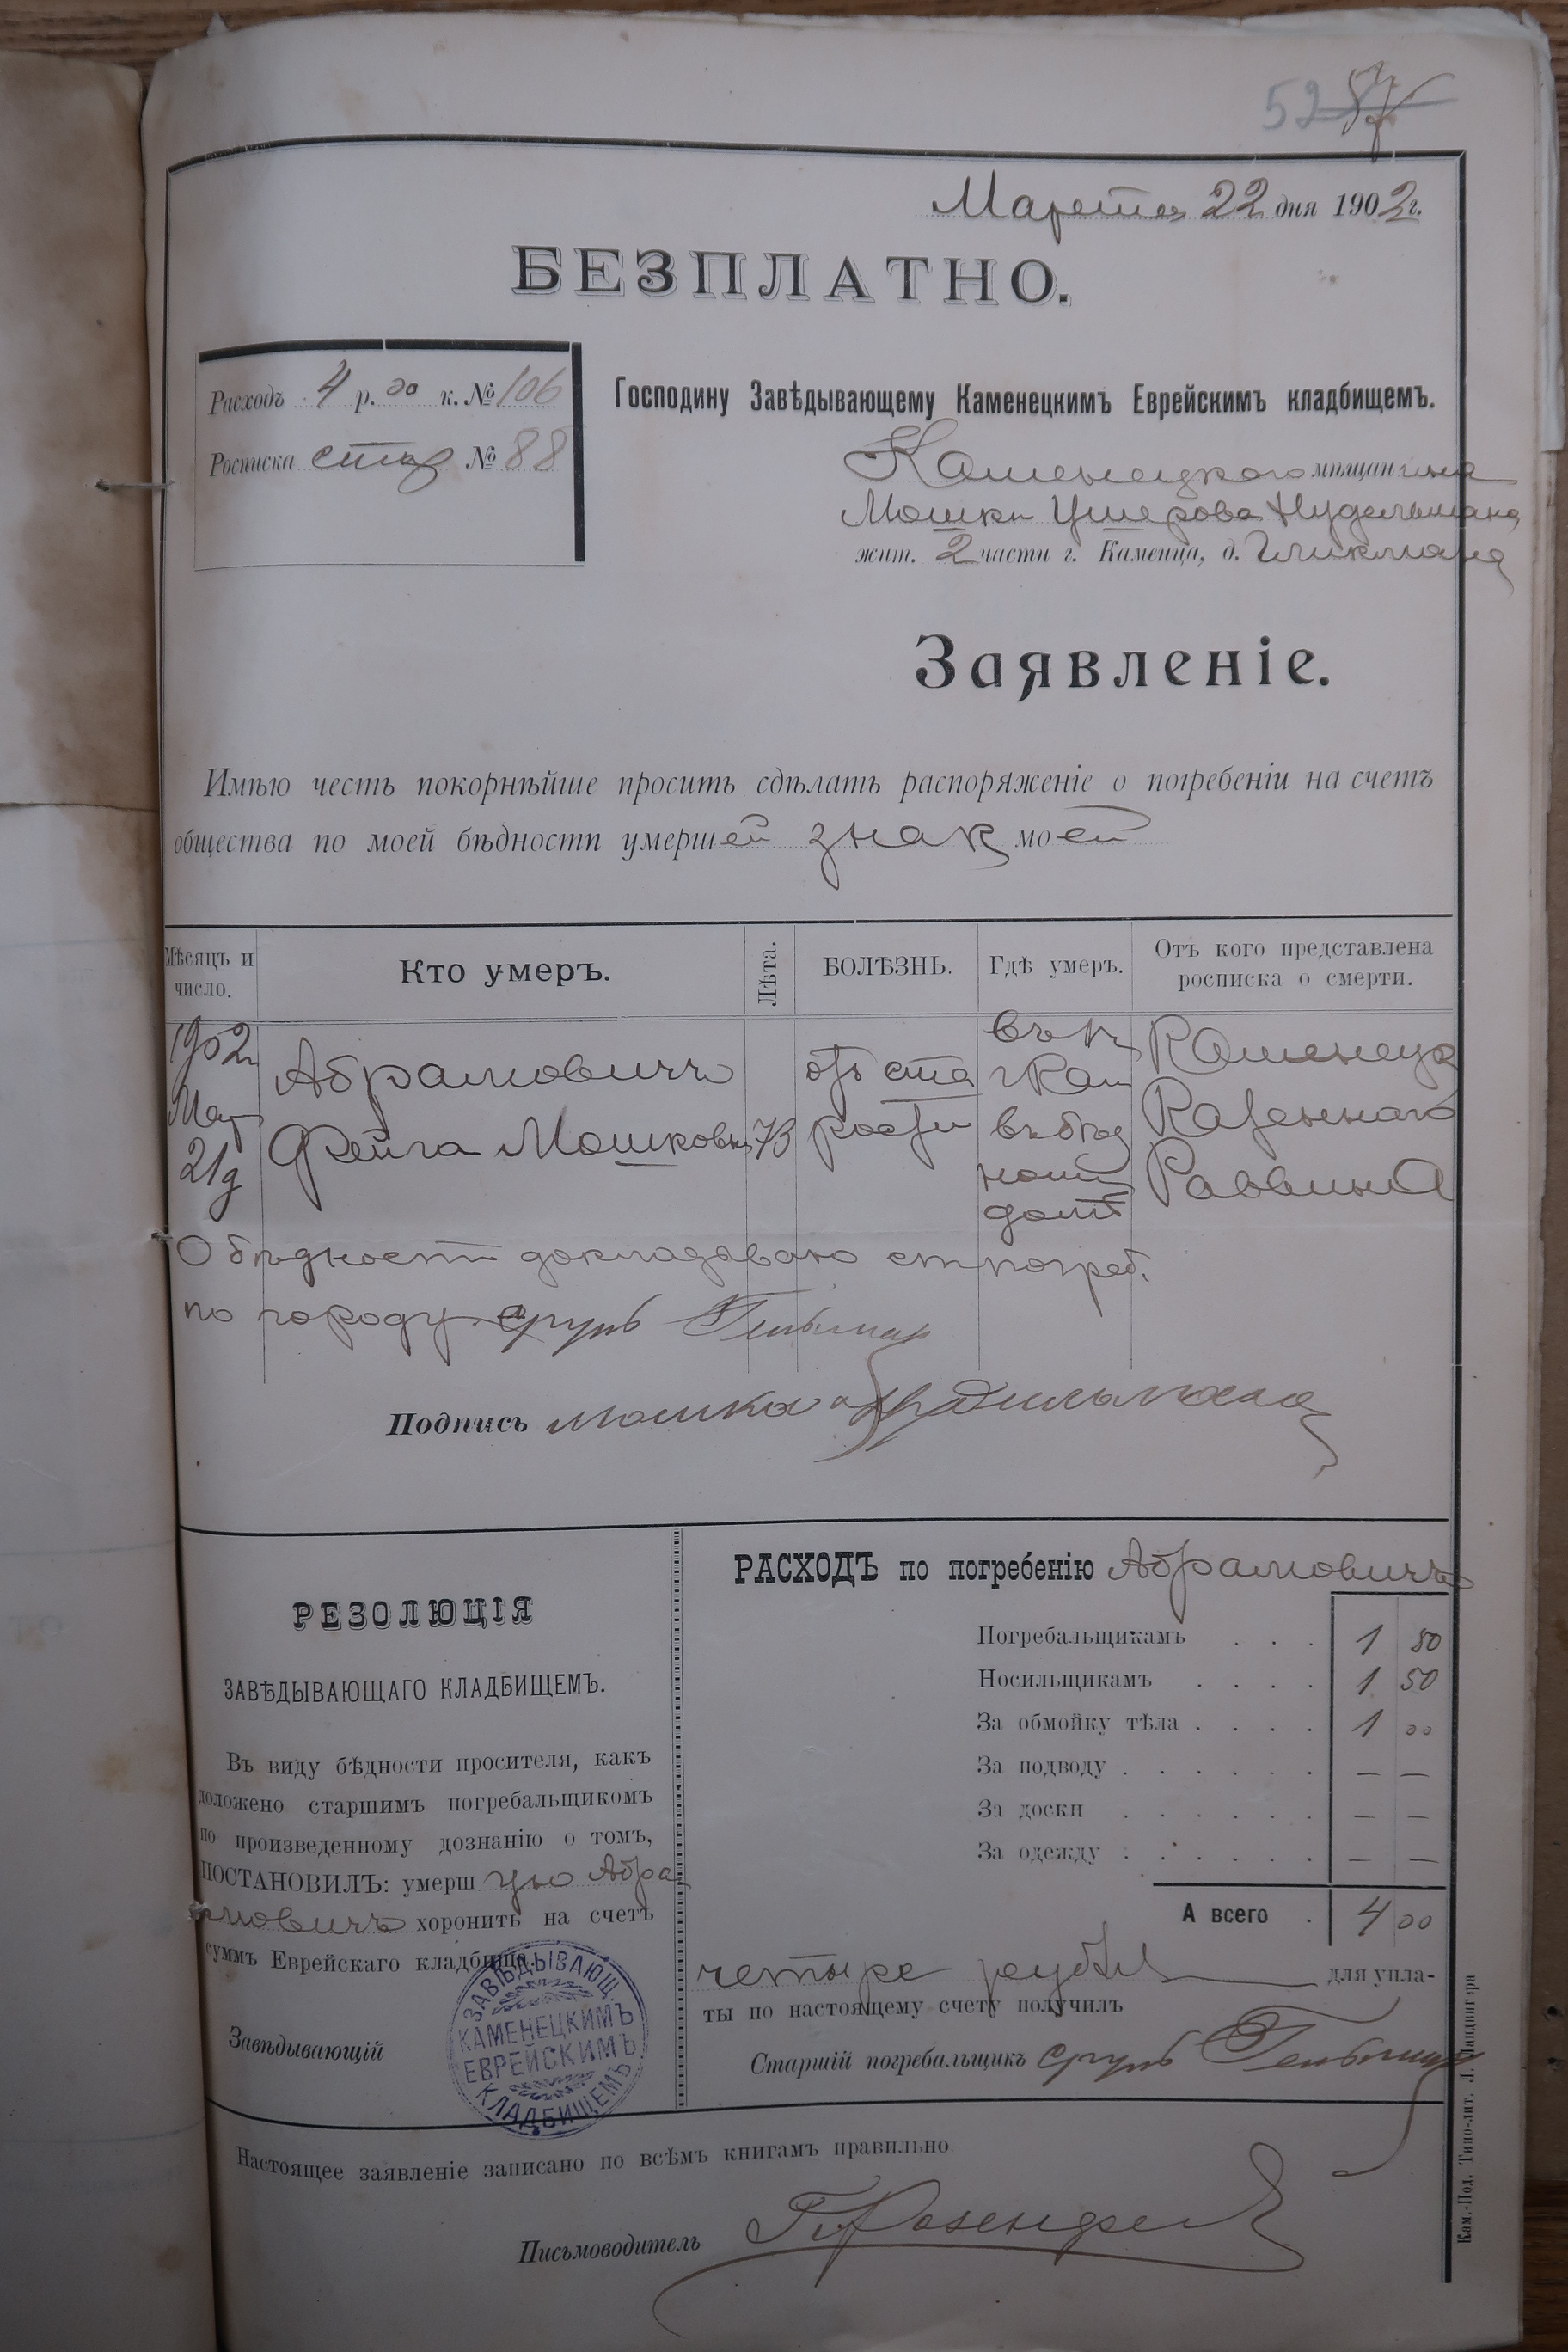 52
Марта 22 дня 1902 г.
БЕЗПЛАТНО.
Расходъ 4 р. 00 к. № 106
Росписка стар № 88
Господину Завѣдывающему Каменецкимъ Еврейскимъ кладбищемъ.
Каменецкого мѣщанина
Мошки Ушерова Нудельмана
жит. 2 части г. Каменца, д. Гликмана
Заявленіе.
Имѣю честь покорнѣйше просить сдѣлать распоряженіе о погребеніи на счетъ
общества по моей бѣдности умершей знак моей
Мѣсяцъ и число.
Кто умеръ.
Лѣта.
БОЛѢЗНЬ.
Гдѣ умеръ.
Отъ кого представлена росписка о смерти.
1902
Мар
21 д
Абрамовичъ
Фейга Мошковна
73
отъ ста
рости
въ
г Кам
въ бѣд
ном
домѣ
Каменец
Казеннаго
Раввина
О бѣдности докладываю ст погреб.
по городу Срулъ
Подпись Мошка Нудильмана
РЕЗОЛЮЦІЯ
ЗАВѢДЫВАЮЩАГО КЛАДБИЩЕМЪ.
Въ виду бѣдности просителя, какъ
доложено старшимъ погребальщикомъ
по произведенному дознанію о томъ,
ПОСТАНОВИЛЪ: умершую Абра
мовичъ хоронить на счетъ
суммъ Еврейскаго кладбища.
Завѣдывающій
ЗАВѢДЫВАЮЩ.
КАМЕНЕЦКИМЪ
ЕВРЕЙСКИМЪ
КЛАДБИЩЕМЪ
РАСХОДЪ по погребенію Абрамовичъ
Погребальщикамъ . . . 1 50
Носильщикамъ . . . . 1 50
За обмойку тѣла . . . . 1 00
За подводу . . . . . . — —
За доски . . . . . . — —
За одежду . . . . . . — —
А всего . 4 00
четыре рубля для упла-
ты по настоящему счету получилъ
Старшій погребальщикъ Срулъ
Настоящее заявленіе записано по всѣмъ книгамъ правильно
Письмоводитель Розенфел
Кам.-Под. Типо-лит. Л. Ландвигера